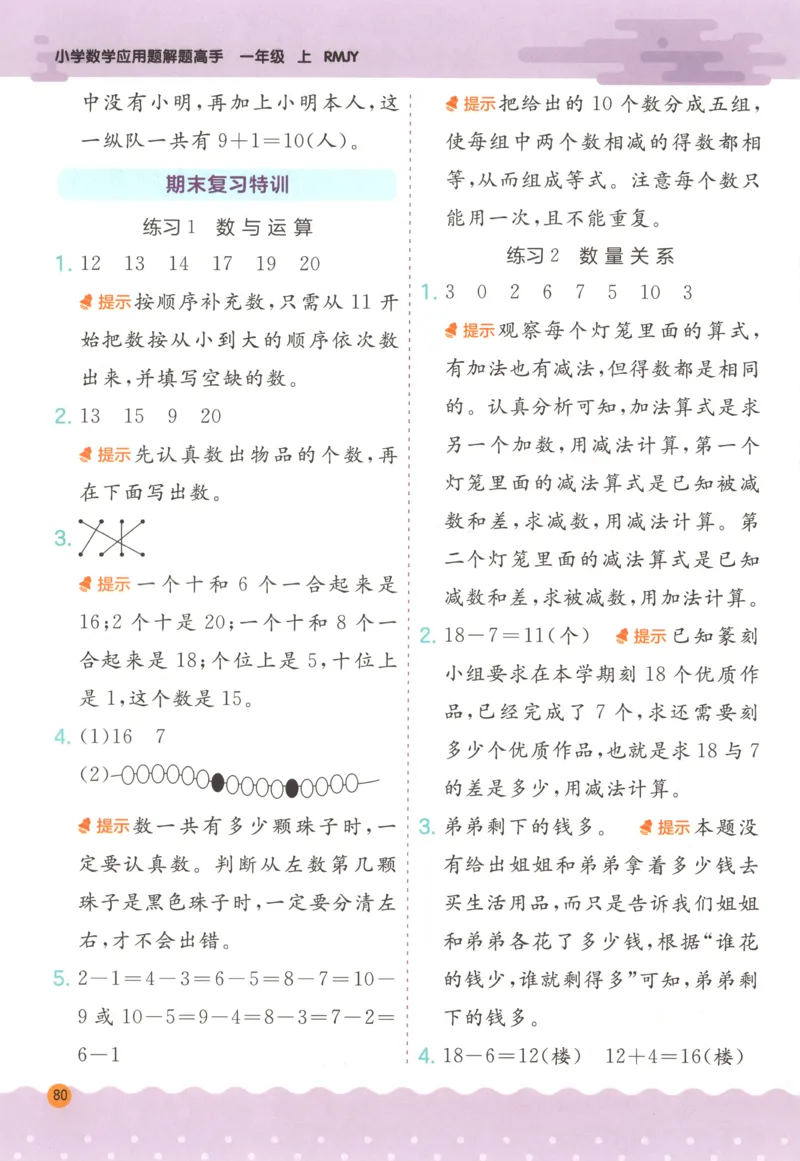 小学数学应用题解题高手 一年级 上 RMJY
中没有小明,再加上小明本人,这
一纵队一共有 9+1=10(人)。
期末复习特训
练习1 数与运算
1. 12 13 14 17 19 20
提示 按顺序补充数,只需从 11 开
始把数按从小到大的顺序依次数
出来,并填写空缺的数。
2. 13 15 9 20
提示 先认真数出物品的个数,再
在下面写出数。
3.
提示 一个十和 6 个一合起来是
16;2 个十是 20;一个十和 8 个一
合起来是 18;个位上是 5,十位上
是 1,这个数是 15。
4. (1)16 7
(2)
提示 数一共有多少颗珠子时,一
定要认真数。判断从左数第几颗
珠子是黑色珠子时,一定要分清左
右,才不会出错。
5. 2-1=4-3=6-5=8-7=10-
9 或 10-5=9-4=8-3=7-2=
6-1
提示 把给出的 10 个数分成五组,
使每组中两个数相减的得数都相
等,从而组成等式。注意每个数只
能用一次,且不能重复。
练习2 数量关系
1. 3 0 2 6 7 5 10 3
提示 观察每个灯笼里面的算式,
有加法也有减法,但得数都是相同
的。认真分析可知,加法算式是求
另一个加数,用减法计算,第一个
灯笼里面的减法算式是已知被减
数和差,求减数,用减法计算。第
二个灯笼里面的减法算式是已知
减数和差,求被减数,用加法计算。
2. 18-7=11(个) 提示 已知篆刻
小组要求在本学期刻 18 个优质作
品,已经完成了 7 个,求还需要刻
多少个优质作品,也就是求 18 与 7
的差是多少,用减法计算。
3. 弟弟剩下的钱多。 提示 本题没
有给出姐姐和弟弟拿着多少钱去
买生活用品,而只是告诉我们姐姐
和弟弟各花了多少钱,根据“谁花
的钱少,谁就剩得多”可知,弟弟剩
下的钱多。
4. 18-6=12(楼) 12+4=16(楼)
80